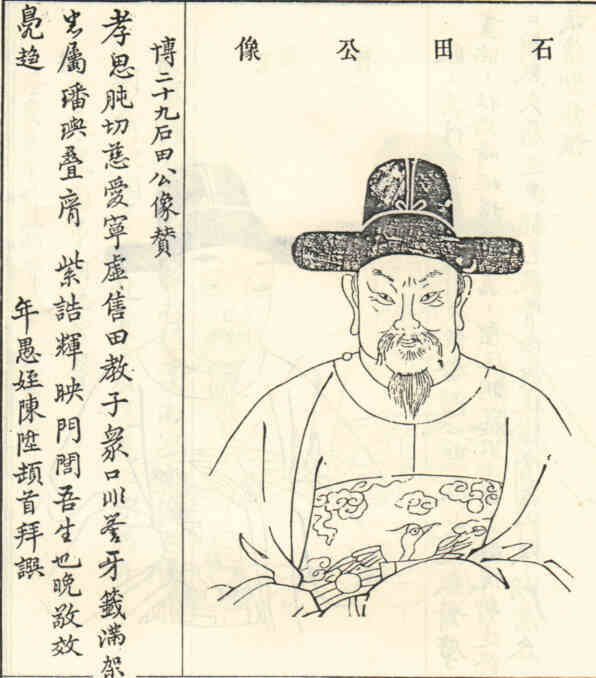 石田公像
博二十九石田公像賛
孝思肫切慈愛寧虛售田教子衆口訾牙籤滿架
屬璠璵疊膺 紫誥輝映門閭吾生也晚敬效
鳬趋 年愚姪陳陞頓首拜譔